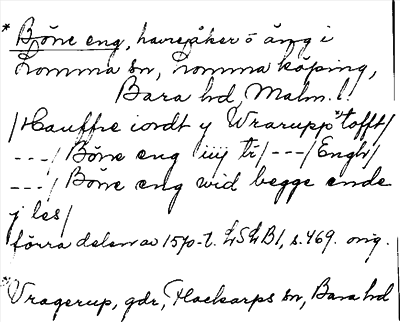 * Böne eng, havreåker o äng i
Lomma sn, Lomma köping,
Bara hd, Malm. l.
/Hauffre iordt y Wrarupp *tofft/
---/ Böne eng iiij tr/ ---/Engh/
---/ Böne eng wid begge ende
y les/
förra delen av 1570-t. LSLB1, s. 469. orig.
* Vragerup, gdr, Flackarps sn, Bara hd